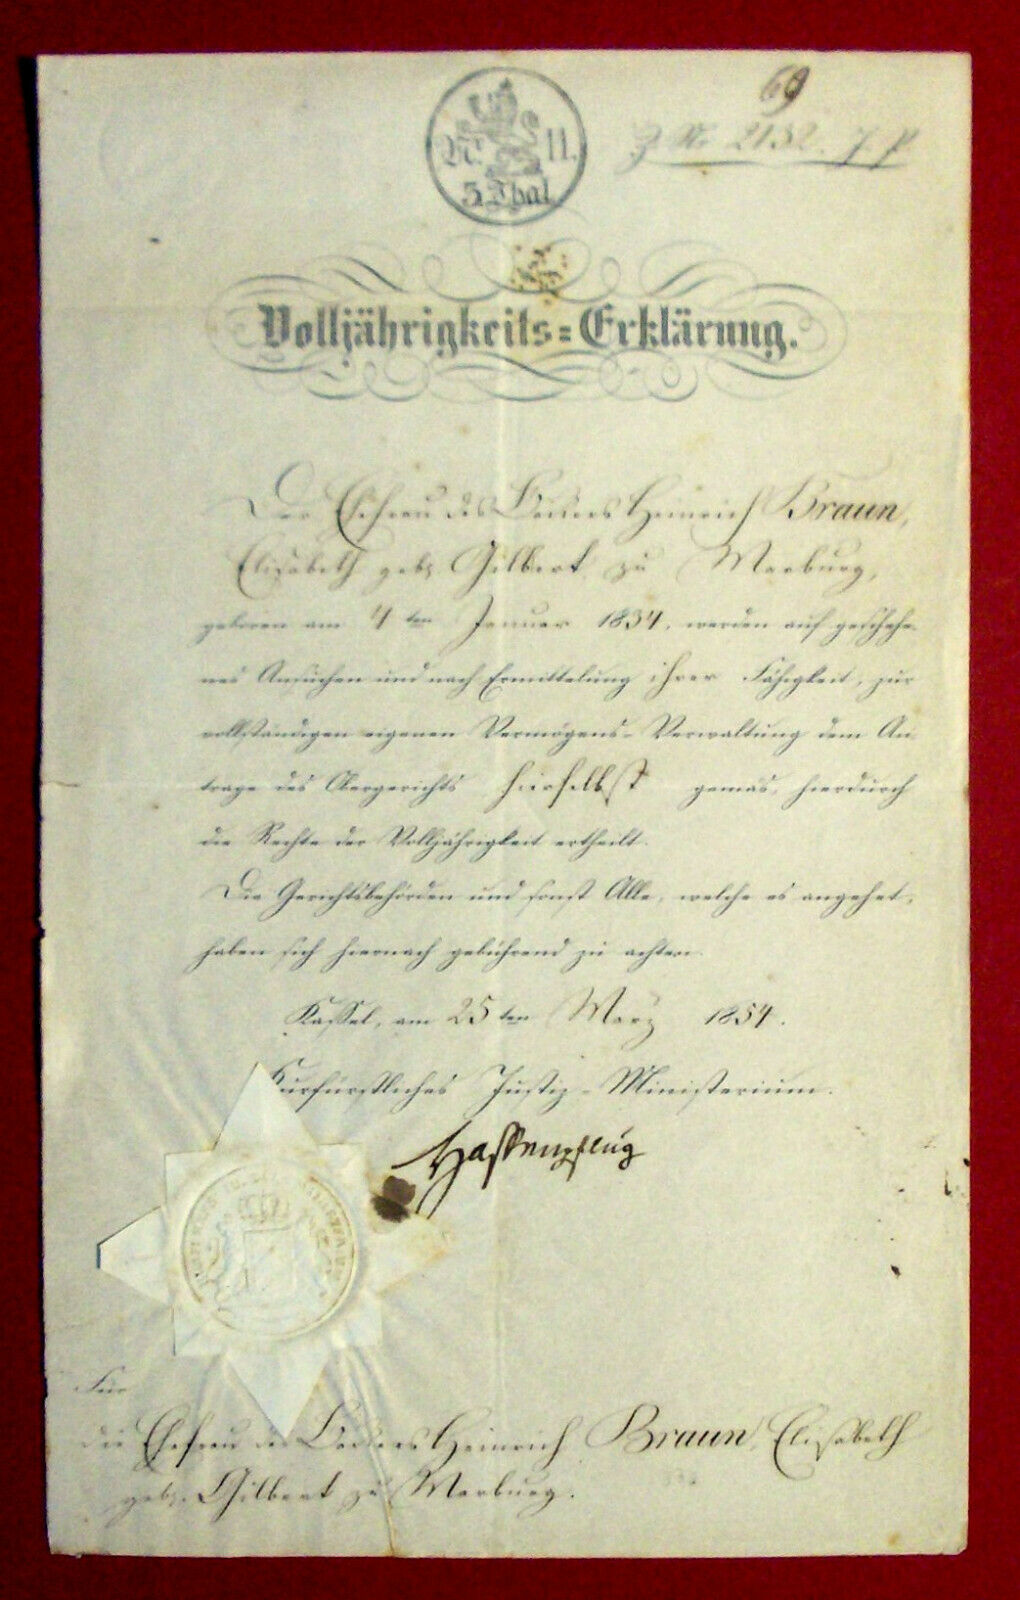 69
J. Nr. 2132. J. P.
II.
5 Thal
Volljährigkeits=Erklärung.
Der Ehefrau des Heinrich Braun,
Elisabeth geb. Gilbert zu Marburg,
geboren am 4ten Januar 1834, werden auf geschehe-
nes Ansuchen und nach Ermittelung ihrer Fähigkeit, zur
vollständigen eigenen Vermögens-Verwaltung dem An-
trage des Obergerichts hierselbst gemäs, hierdurch
die Rechte der Volljährigkeit ertheilt.
Die Gerichtsbehörden und sonst Alle, welche es angehet,
haben sich hiernach gebührend zu achten.
Kassel, am 25ten März 1854.
Kurfürstliches Justiz-Ministerium.
Hassenpflug
Für
die Ehefrau des Heinrich Braun, Elisabeth
geb. Gilbert zu Marburg.